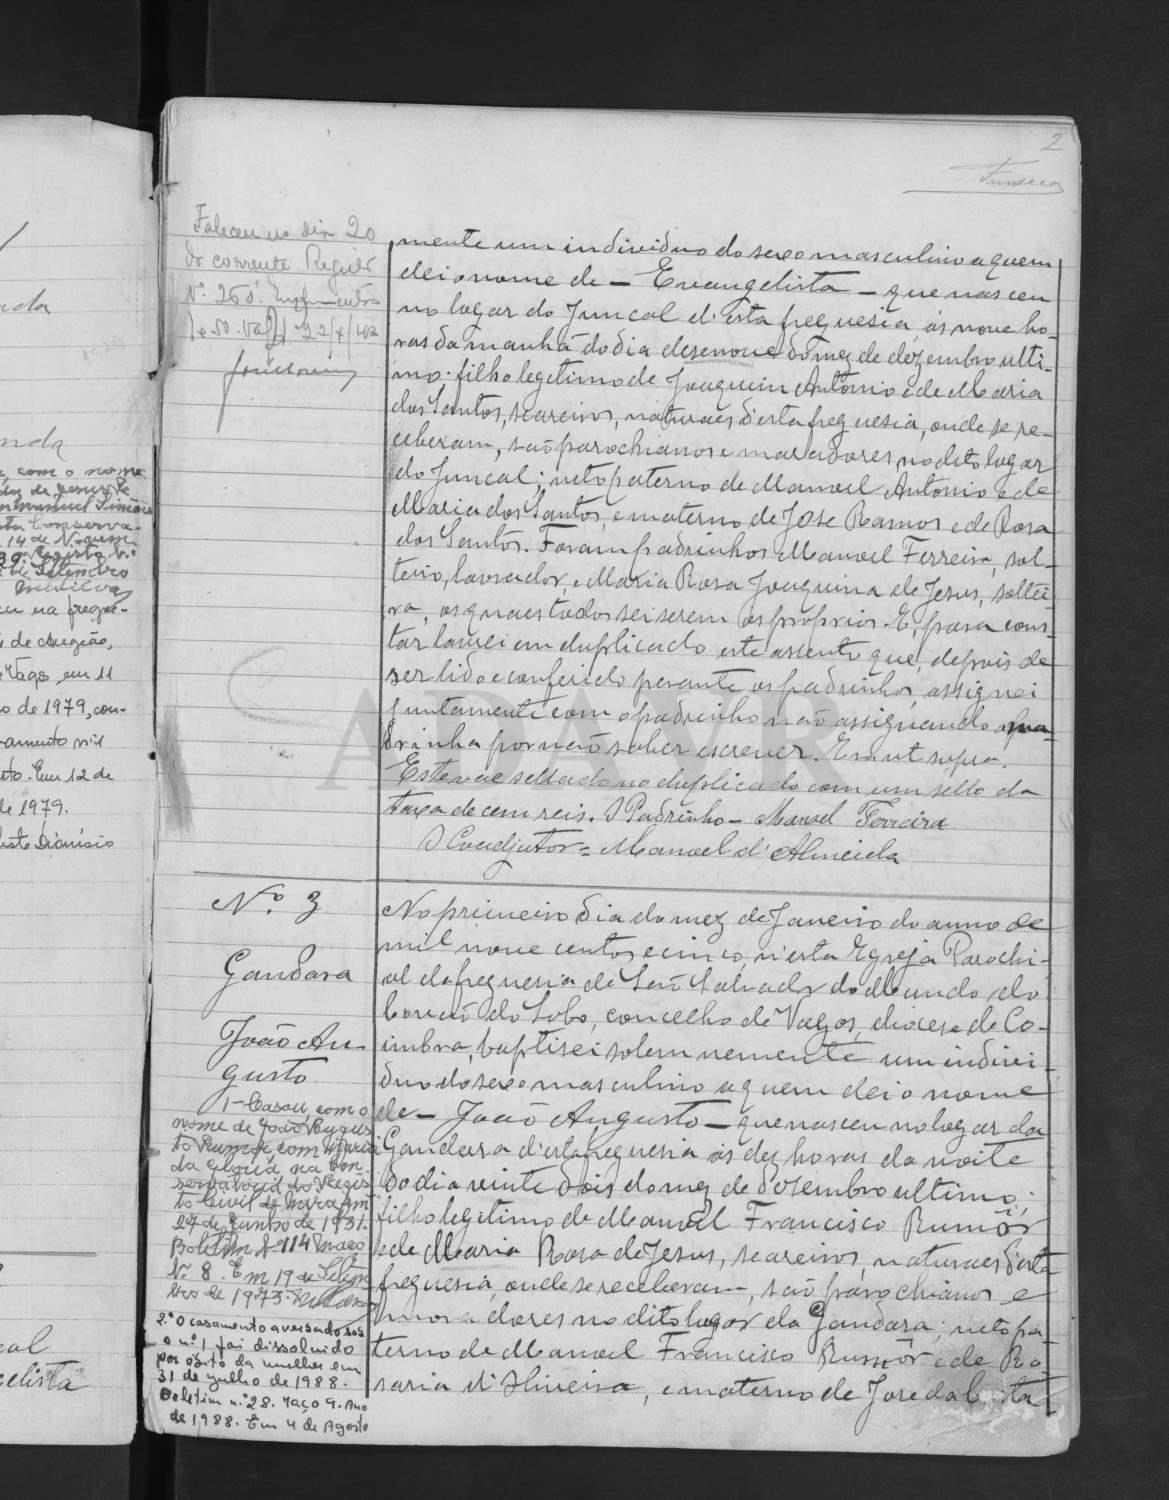 2
Fonseca
Faleceu no dia 20
do corrente. Registo
Nº 260.
mente um individuo do sexo masculino a quem
dei o nome de - Evangelista - que nasceu
no logar do Juncal d'esta freguesia, ás nove ho-
ras da manhã do dia desenove do mez de dezembro ulti-
mo: filho legitimo de Joaquim Antonio e de Maria
dos Santos, seareiros, naturaes d'esta freguesia, onde se re-
ceberam, são parochianos e moradores, no dito logar
do Juncal; neto paterno de Manoel Antonio e de
Maria dos Santos, e materno de José Ramos e de Rosa
dos Santos. Foram padrinhos Manoel Ferreira, sol-
teiro, lavrador, e Maria Rosa Joaquina de Jesus, soltei-
ra, os quaes todos sei serem os proprios. E, para cons-
tar lavrei em duplicado este assento que, depois de
ser lido e conferido perante os padrinhos, assignei
juntamente com o padrinho não assignando a ma-
drinha por não saber escrever. Era ut supra.
Este vae sellado no duplicado com um sello da
taxa de cem reis. O Padrinho - Manoel Ferreira
O Coadjutor = Manoel d'Almeida
Nº. 3
Gandara
João Au-
gusto
1- Casou, com o
nome de João Augus
to Rumor, com Maria
da Gloria na Con
servatoria do Regis
to Civil de Mira em
27 de Junho de 1931.
Boletim Nº 114 Maço
Nº 8. Em 19 de Setem
bro de 1973.
2.º O casamento averbado sob
o nº 1 foi dissolvido
por óbito da mulher em
31 de julho de 1988.
Boletim n.º 28. Maço 9. Ano
de 1988. Em 4 de Agosto
No primeiro dia do mez de Janeiro do anno de
mil nove centos e cinco, n'esta Egreja Parochi-
al da freguesia de São Salvador do Mundo do
Covão do Lobo, concelho de Vagos, diocese de Co-
imbra, baptisei solemnemente um indivi-
duo do sexo masculino a quem dei o nome
de - João Augusto - que nasceu no logar da
Gandara d'esta freguesia ás dez horas da noite
do dia vinte dois do mez de dezembro ultimo:
filho legitimo de Manoel Francisco Rumôr
e de Maria Rosa de Jesus, seareiros, naturaes d'esta
freguesia, onde se receberam, são parochianos e
moradores no dito logar da Gandara; neto pa-
terno de Manoel Francisco Rumôr e de Ro
saria d'Oliveira, e materno de José da Costa
nda
com o nome
14 de
Setembro
de Aregião,
Vagos, em 11
de 1979, con-
to. Em 12 de
de 1979.
Dionísio
elista
ADAVR